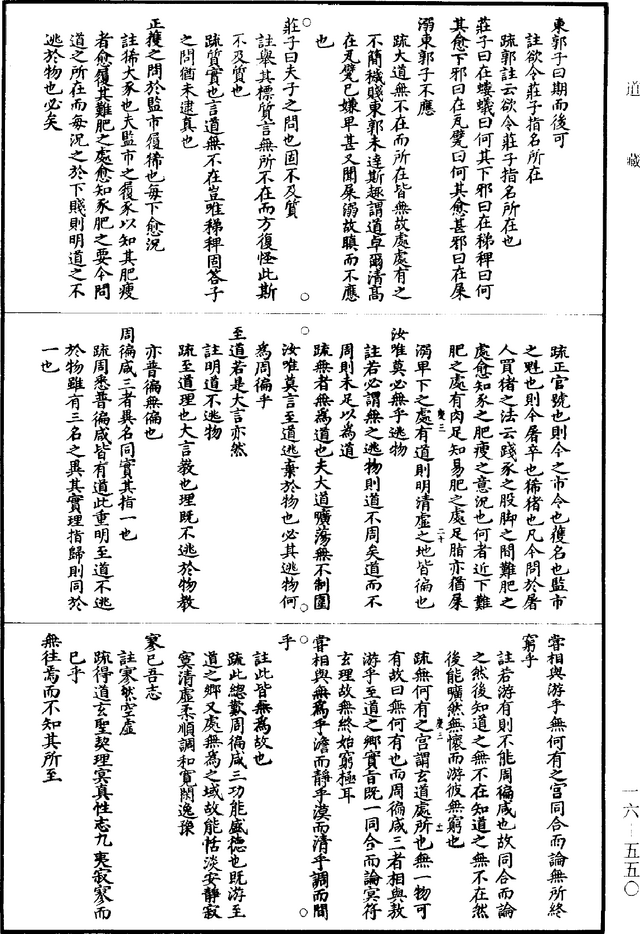 道藏
東郭子曰期而後可
註欲令莊子指名所在
疏郭註云欲令莊子指名所在也
莊子曰在螻蟻曰何其下邪曰在稊稗曰何
其愈下邪曰在瓦甓曰何其愈甚邪曰在屎
溺東郭子不應
疏大道無不在而所在皆無故處處有之
不簡穢賤東郭未達斯趣謂道卓爾清高
在瓦甓已嫌卑甚又聞屎溺故瞋而不應
也
莊子曰夫子之問也固不及質
註舉其標質言無所不在而方復怪此斯
不及質也
疏質實也言道無不在豈唯稊稗固答子
之問猶未逮真也
正獲之問於監市履狶也每下愈況
註狶大豕也夫監市之履豕以知其肥瘦
者愈履其難肥之處愈知豕肥之要今問
道之所在而每況之於下賤則明道之不
逃於物也必矣
疏正官號也則今之市令也獲名也監市
之魁也則今屠卒也狶猪也凡今問於屠
人買猪之法云踐豕之股脚之間難肥之
處愈知豕之肥瘦之意況也何者近下難
肥之處有肉足知易肥之處足脂亦猶屎
溺卑下之處有道則明清虛之地皆徧也
汝唯莫必無乎逃物
註若必謂無之逃物則道不周矣道而不
周則未足以為道
疏無者無為道也夫大道曠蕩無不制圍
汝唯莫言至道逃棄於物也必其逃物何
為周徧乎
至道若是大言亦然
註明道不逃物
疏至道理也大言教也理既不逃於物教
亦普徧無偏也
周徧咸三者異名同實其指一也
疏周悉普徧咸皆有道此重明至道不逃
於物雖有三名之異其實理指歸則同於
一也
甞相與游乎無何有之宫同合而論無所終
窮乎
註若游有則不能周徧咸也故同合而論
之然後知道之無不在知道之無不在然
後能曠然無懷而游彼無窮也
疏無何有之宫謂玄道處所也無一物可
有故曰無何有也而周徧咸三者相與敖
游乎至道之鄉實旨既一同合而論冥符
玄理故無終始窮極耳
甞相與無為乎澹而靜乎漠而清乎調而閒
乎
註此皆無為故也
疏此總歎周徧咸三功能盛德也既游至
道之鄉又處無為之域故能恬淡安靜寂
寞清虛柔順調和寬閑逸豫
寥已吾志
註寥然空虛
疏得道玄聖契理冥真性志九夷寂寥而
已乎
無往焉而不知其所至
慶三
二十
慶三
一六-五五〇